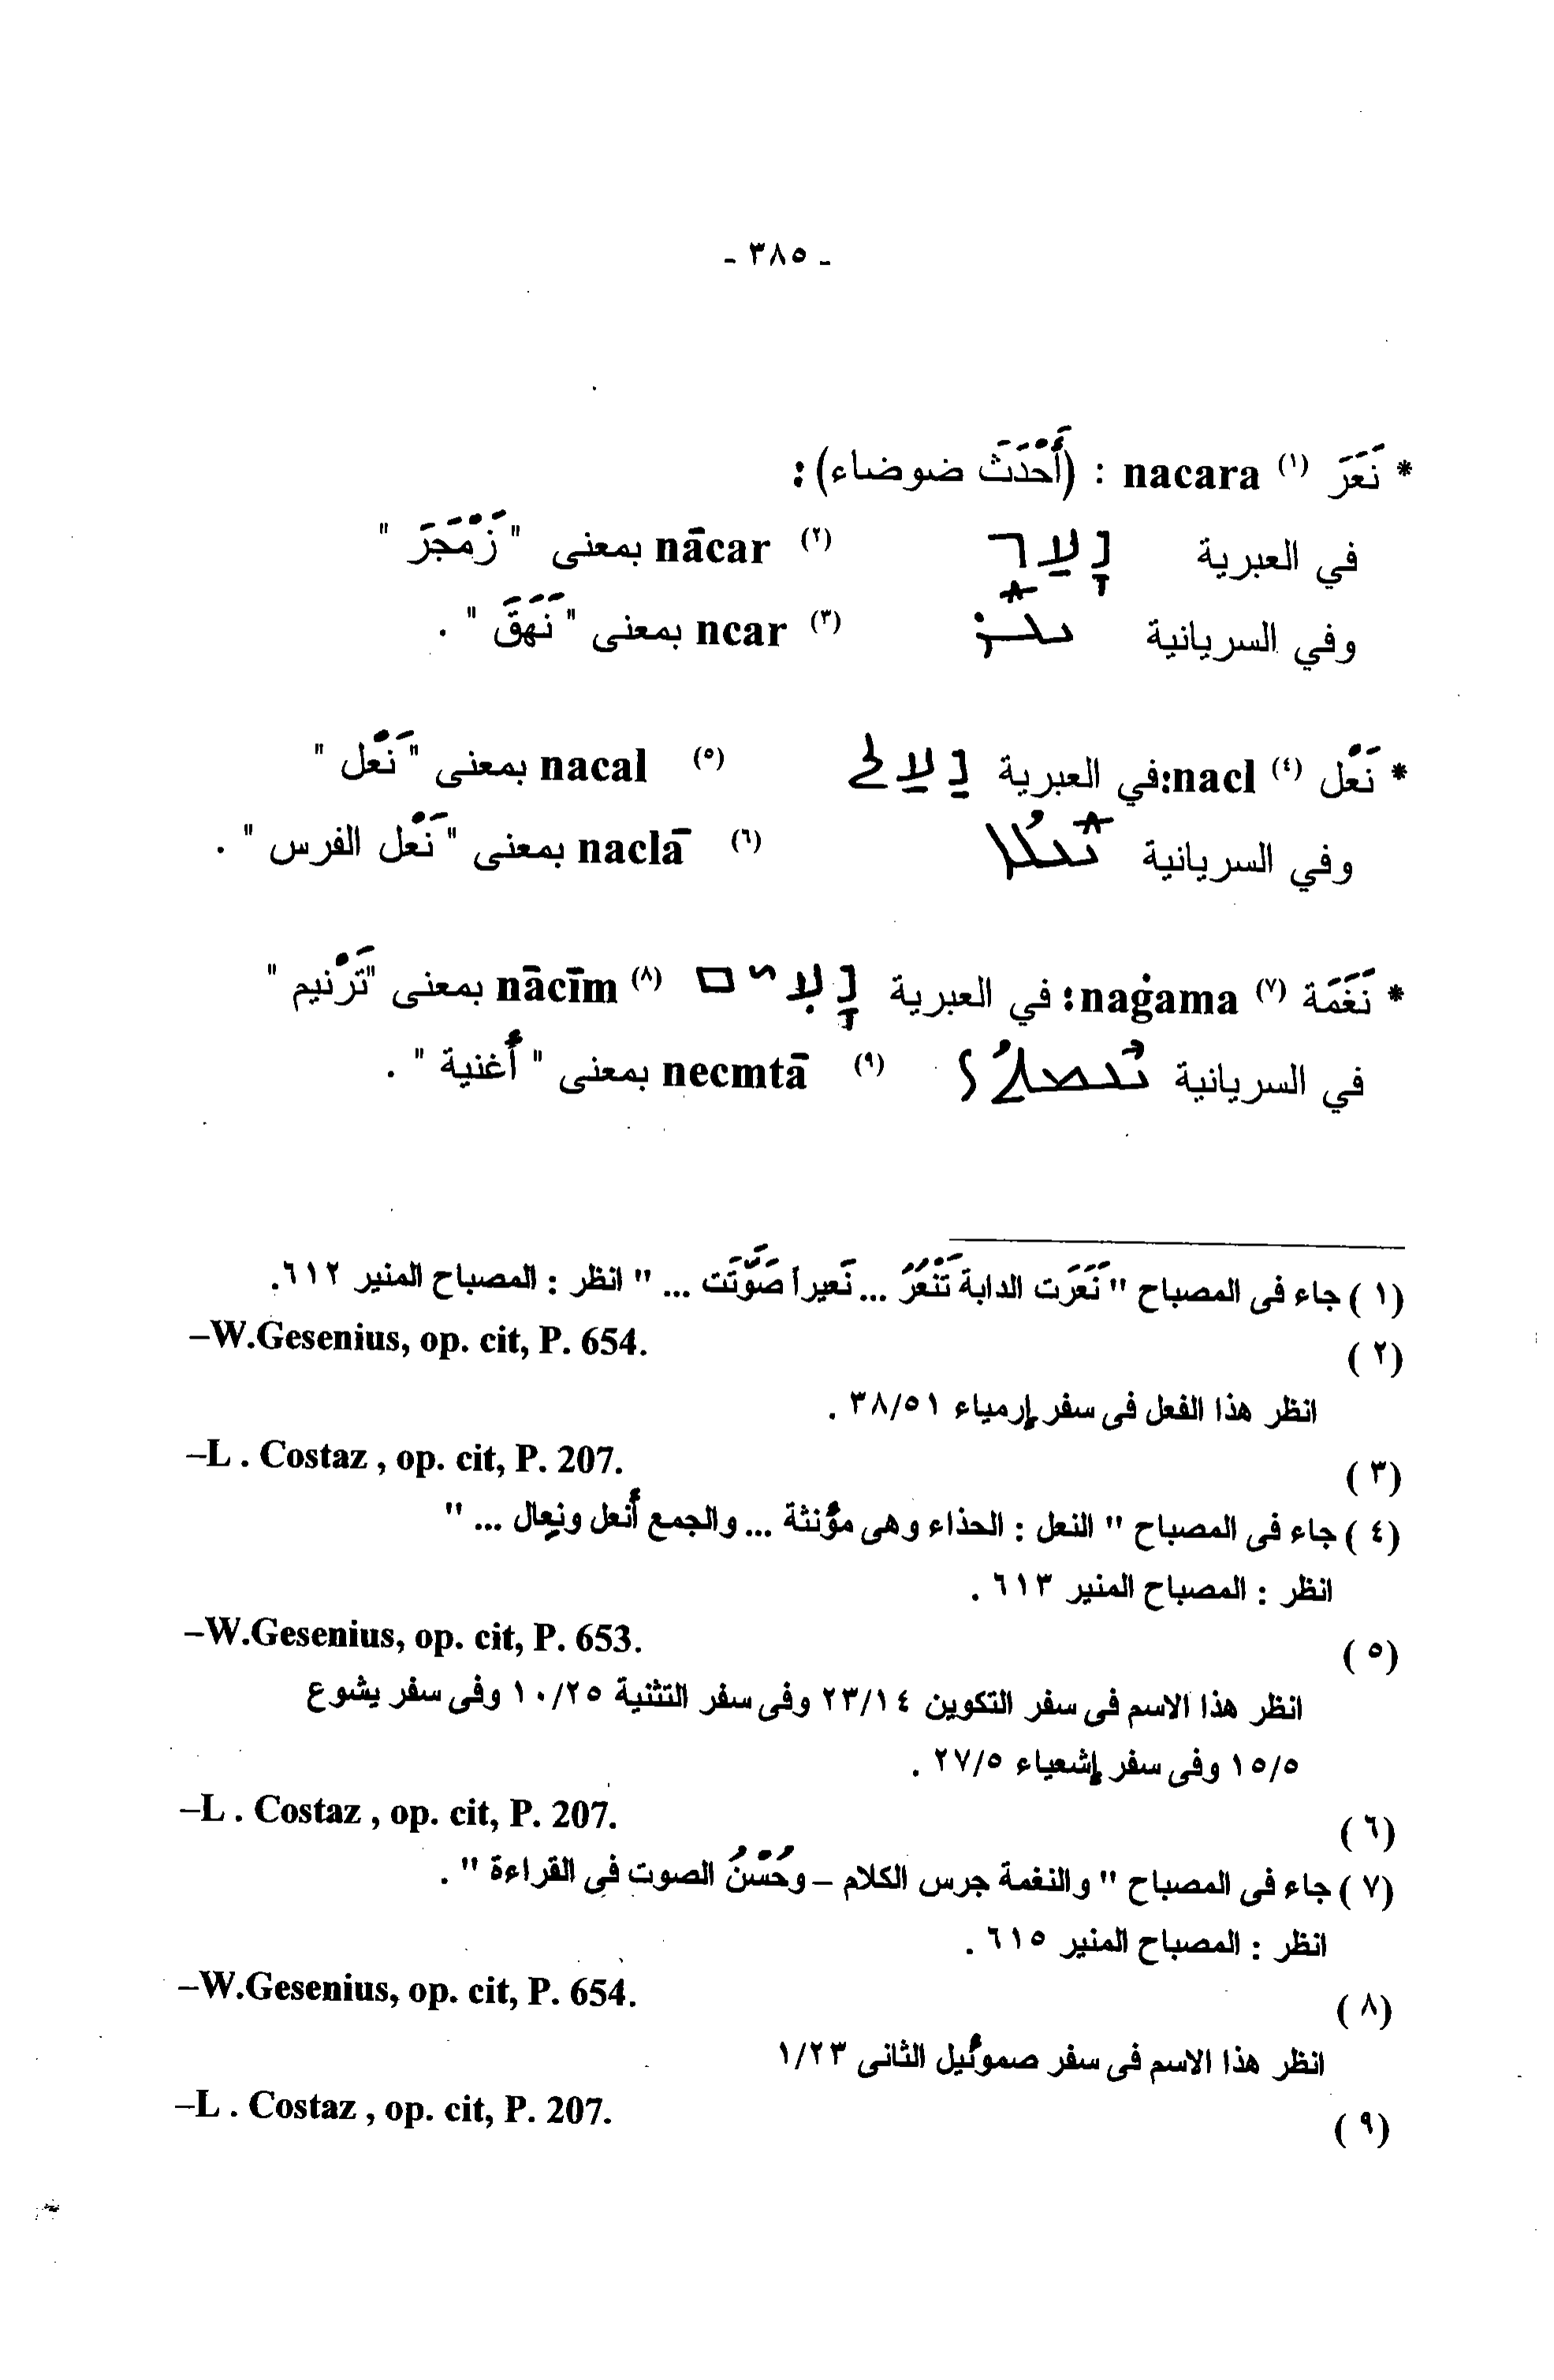 - ٣٨٥ -
* نَعَرَ (١) nacara : (أَحْدَثَ ضوضاء):
في العبرية נָעַר (٢) nācar بمعنى " زَمْجَرَ "
وفي السريانية ܢܥܰܪ (٣) ncar بمعنى " نَهَقَ " .
* نَعْل (٤) nacl:في العبرية נַעַל (٥) nacal بمعنى " نَعْل "
وفي السريانية ܢܰܥܠܳܐ (٦) naclā بمعنى " نَعْل الفرس " .
* نَغَمَة (٧) naġama: في العبرية נָעִים (٨) nācīm بمعنى "تَرْنيم "
في السريانية ܢܶܥܡܬܳܐ (٩) necmtā بمعنى " أُغنية " .
(١) جاء فى المصباح " نَعَرَت الدابة تَنْعُرُ ... نَعيراً صَوَّتَت ... " انظر : المصباح المنير ٦١٢.
(٢) –W.Gesenius, op. cit, P. 654.
انظر هذا الفعل فى سفر إرمياء ٣٨/٥١ .
(٣) –L . Costaz , op. cit, P. 207.
(٤) جاء فى المصباح " النعل : الحذاء وهى مؤنثة ... والجمع أنعل ونِعال ... "
انظر : المصباح المنير ٦١٣ .
(٥) –W.Gesenius, op. cit, P. 653.
انظر هذا الاسم فى سفر التكوين ٢٣/١٤ وفى سفر التثنية ١٠/٢٥ وفى سفر يشوع
١٥/٥ وفى سفر إشعياء ٢٧/٥ .
(٦) –L . Costaz , op. cit, P. 207.
(٧) جاء فى المصباح " والنغمة جرس الكلام – وحُسْنُ الصوت فى القراءة " .
انظر : المصباح المنير ٦١٥ .
(٨) –W.Gesenius, op. cit, P. 654.
انظر هذا الاسم فى سفر صموئيل الثانى ١/٢٣
(٩) –L . Costaz , op. cit, P. 207.